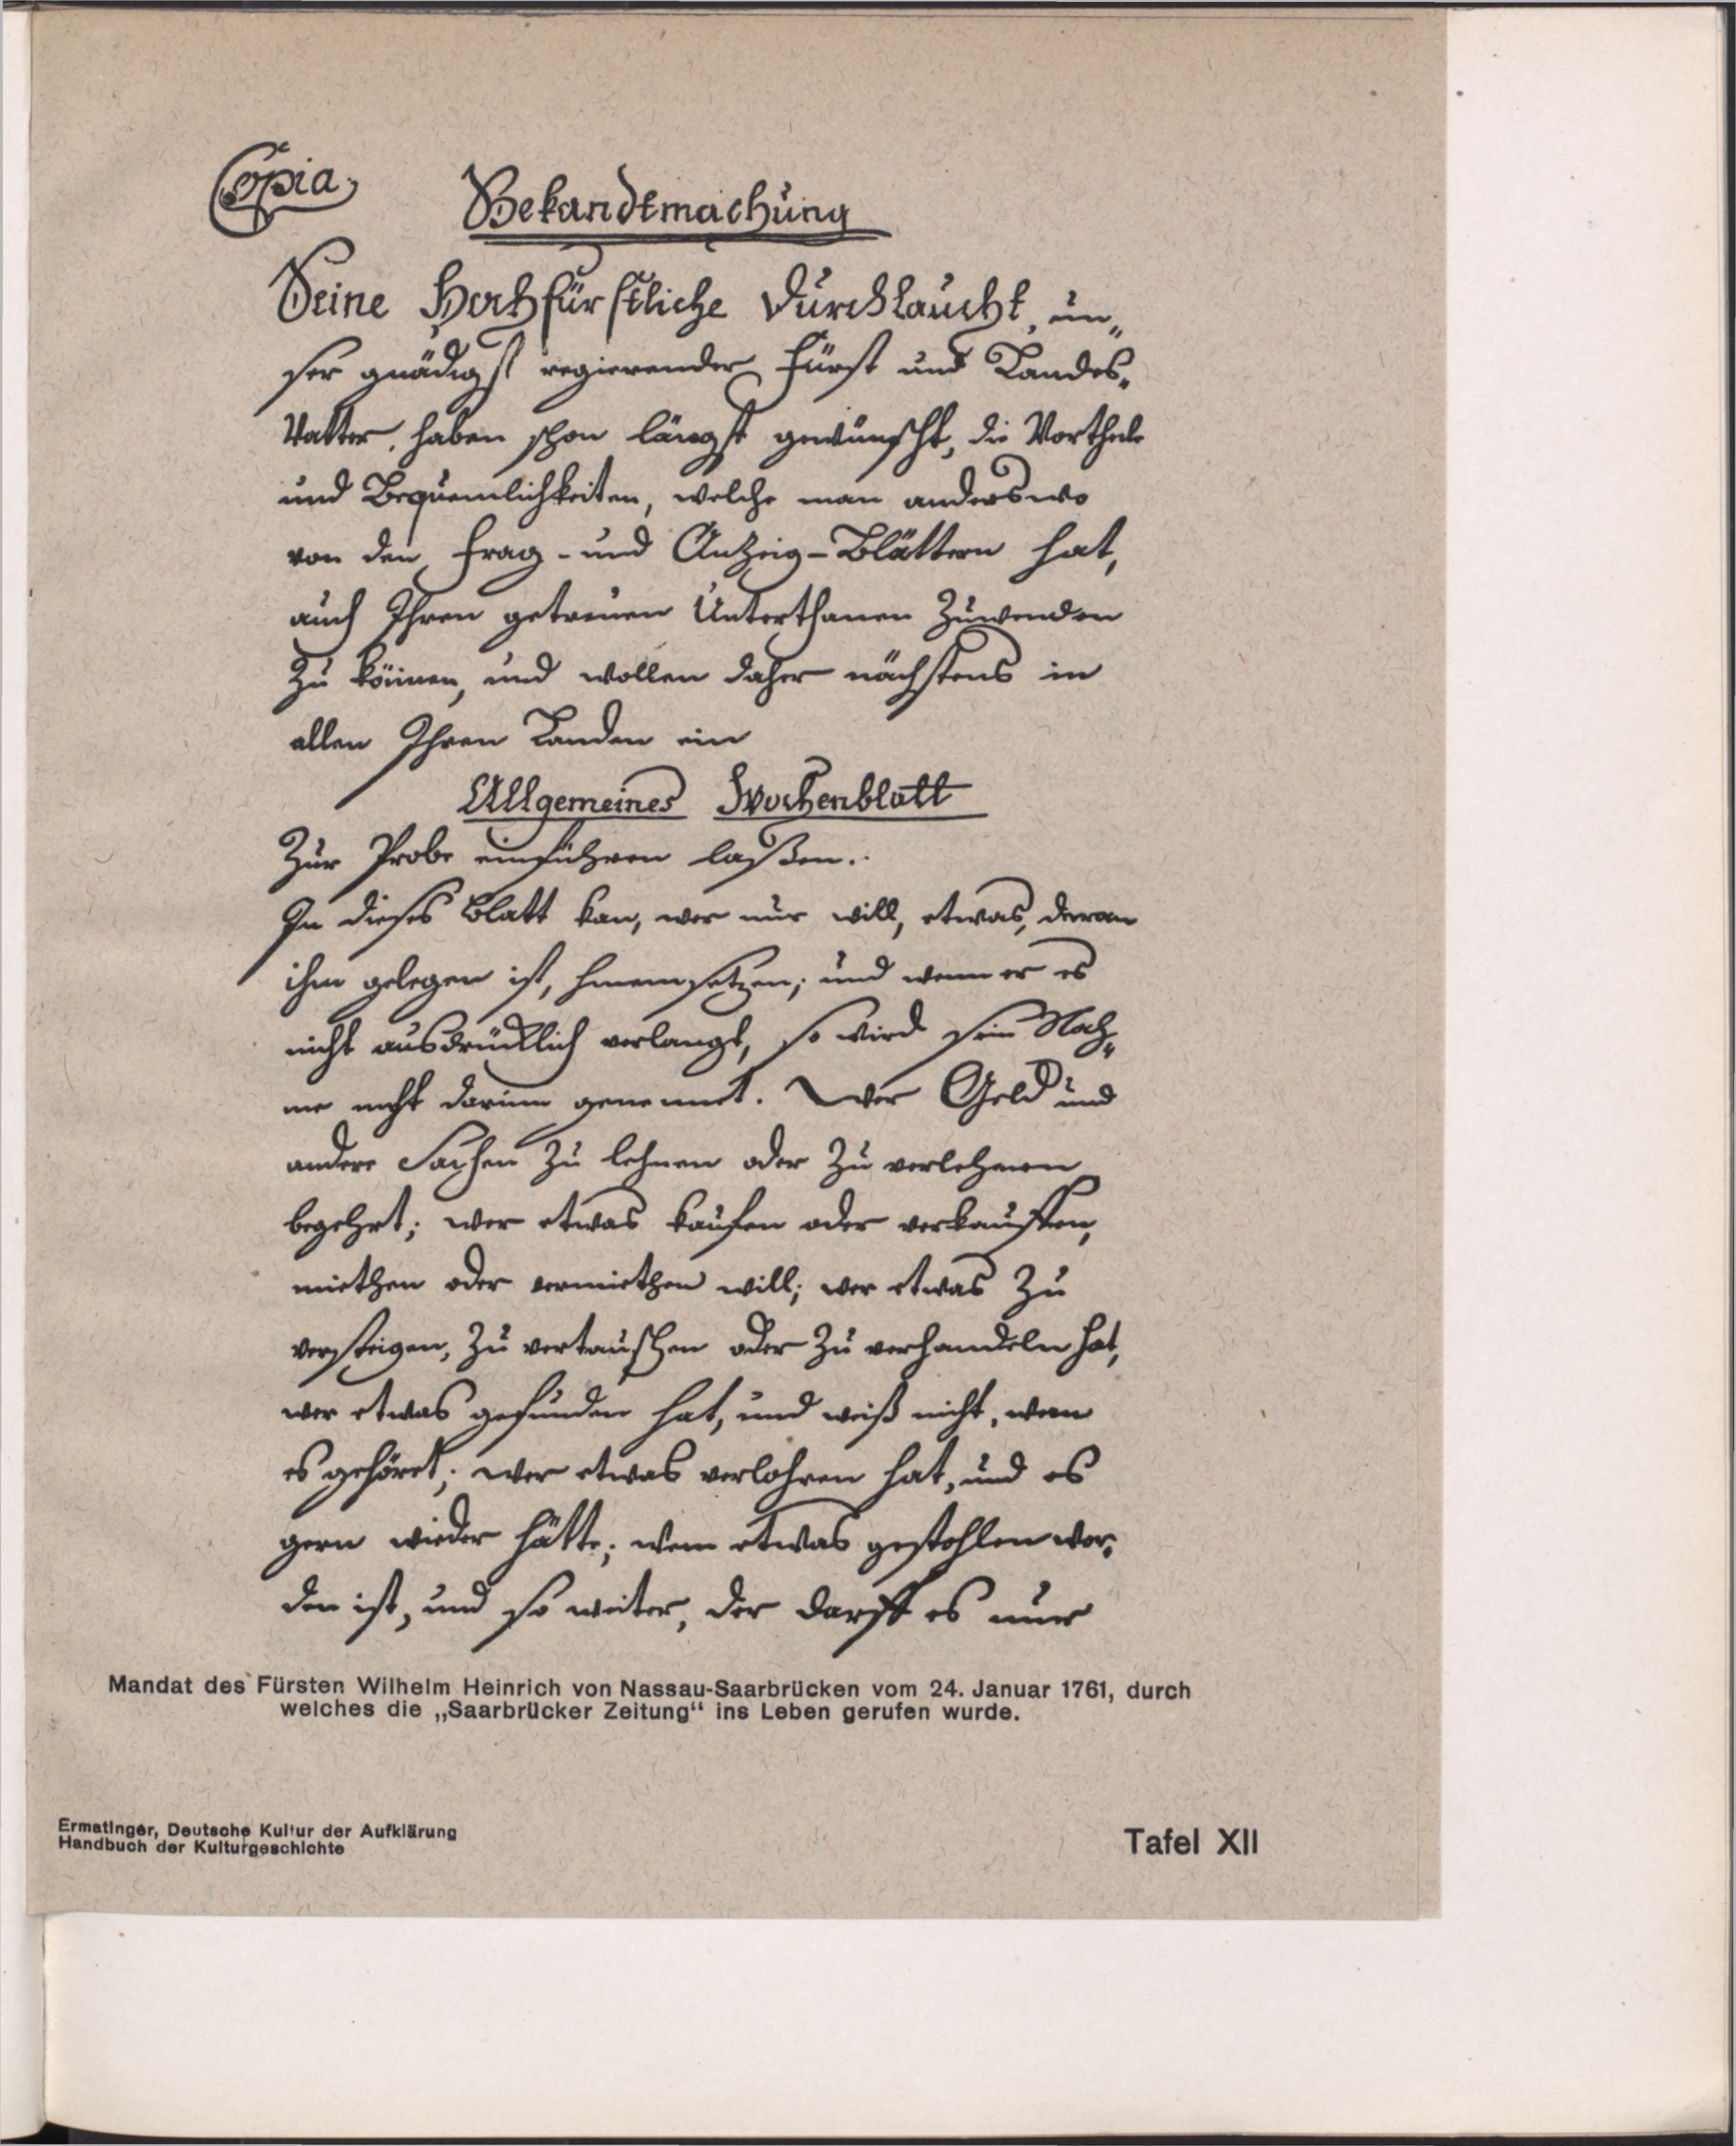 Copia
Bekandtmachung
Seine Hochfürstliche Durchlaucht, un„
ser gnädigst regierender Fürst und Landes„
Vatter, haben schon längst gewünscht, die Vortheile
und Bequemlichkeiten, welche man anderswo
von den Frag- und Anzeig-Blättern hat,
auch Ihren getreuen Unterthanen zuwenden
zu können, und wollen daher nächstens in
allen Ihren Landen ein
Allgemeines Wochenblatt
zur Probe einführen laßen.
In dieses Blatt kan, wer nur will, etwas, daran
ihm gelegen ist, hineinsetzen; und wenn er es
nicht ausdrücklich verlangt, so wird sein Nah„
me nicht darinn genennet. Wer Geld und
andere Sachen zu lehnen oder zu verlehnen
begehrt; wer etwas kaufen oder verkauffen,
miethen oder vermiethen will; wer etwas zu
versteigen, zu vertauschen oder zu verhandeln hat,
wer etwas gefunden hat, und weiß nicht, wem
es gehöret; wer etwas verlohren hat, und es
gern wieder hätte; wem etwas gestohlen wor„
den ist, und so weiter, der darff es nur
Mandat des Fürsten Wilhelm Heinrich von Nassau-Saarbrücken vom 24. Januar 1761, durch
welches die „Saarbrücker Zeitung“ ins Leben gerufen wurde.
Ermatinger, Deutsche Kultur der Aufklärung
Handbuch der Kulturgeschichte
Tafel XII